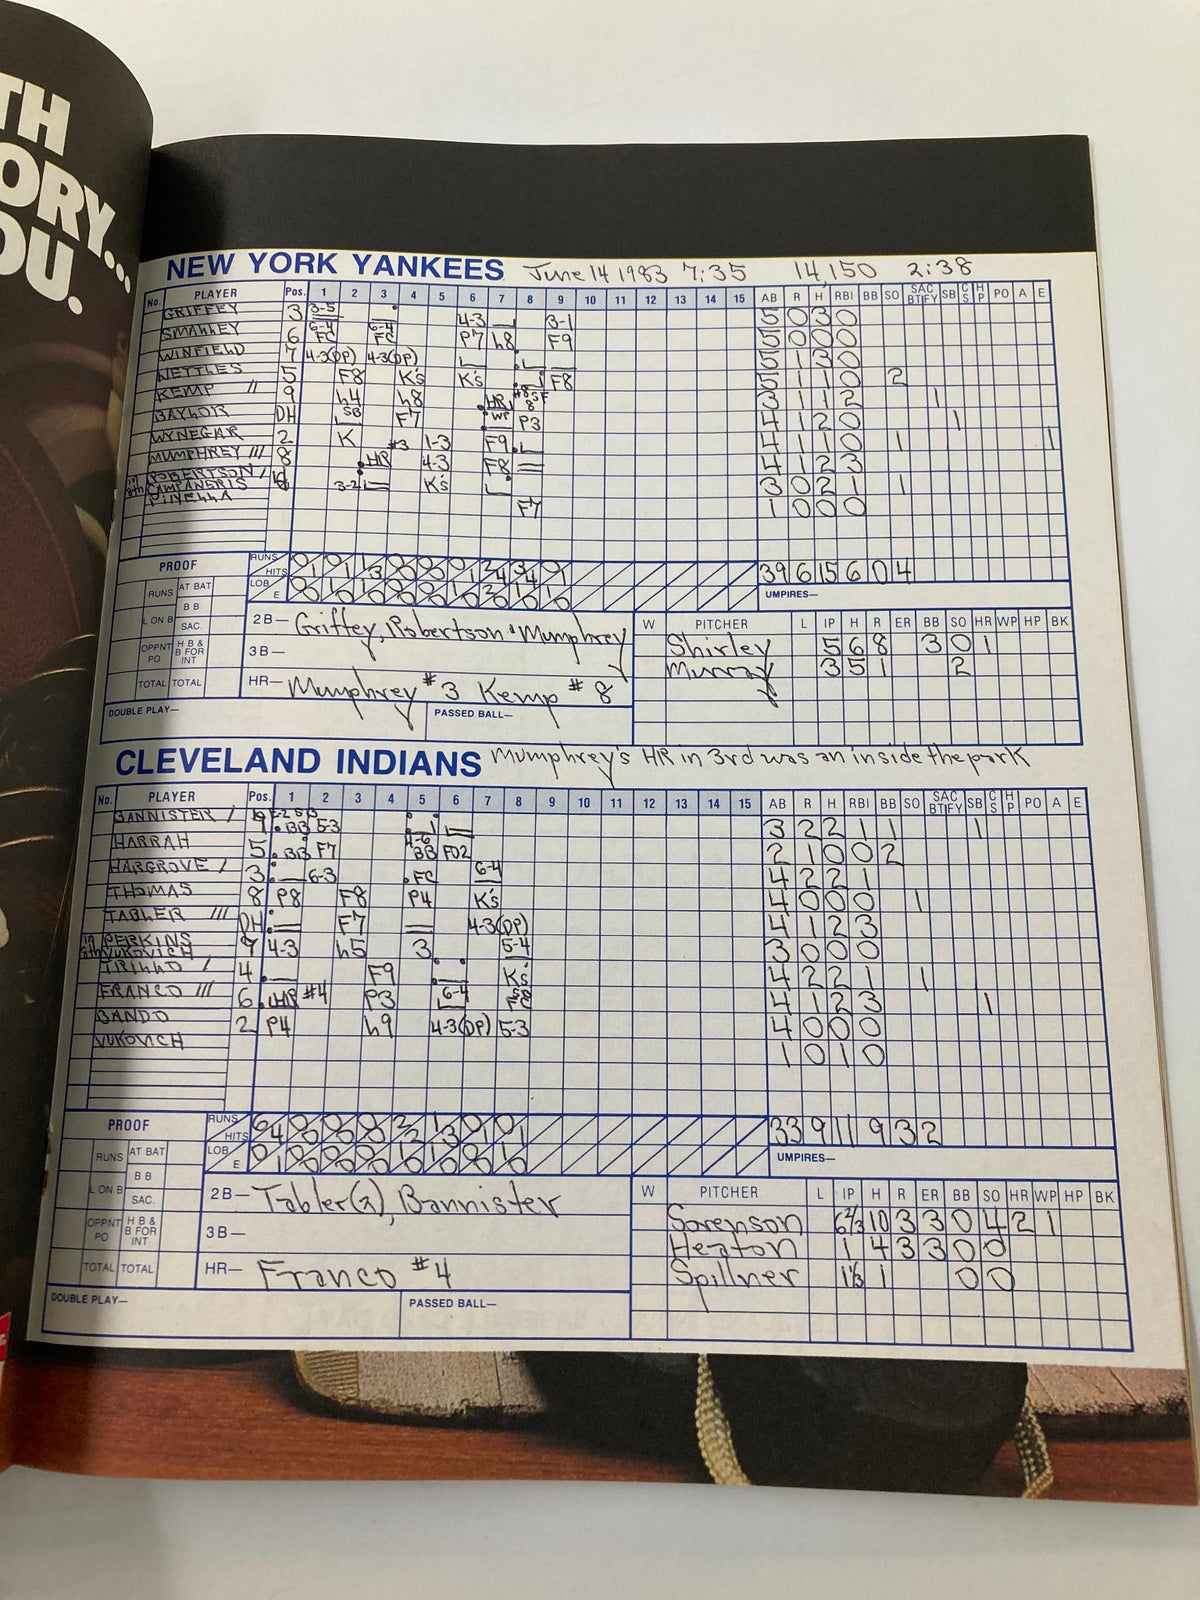 TH
ORY...
OU.
NEW YORK YANKEES June 14 1983 7:35 14,150 2:38
No. PLAYER Pos. 1 2 3 4 5 6 7 8 9 10 11 12 13 14 15 AB R H RBI BB SO SAC BTIFY SB CS HP PO A E
GRIFFEY 3 3-5 4-3 3-1 5 0 3 0
SMALLEY 6 6-4 FC 6-4 FC P7 h8 F9 5 0 0 0
WINFIELD 7 4-3(DP) 4-3(DP) 5 1 3 0
NETTLES 5 F8 K's K's F8 5 1 1 0 2
KEMP 9 h4 h8 HR 3 1 1 2 1
BAYLOR DH SB F7 WP P3 4 1 2 0 1
WYNEGAR 2 K 1-3 F9 4 1 1 0 1 1
MUMPHREY 8 HR #3 4-3 F8 4 1 2 3
ROBERTSON
in 8th CAMPANERIS 3-2 K's 3 0 2 1 1
PINELLA F7 1 0 0 0
PROOF RUNS HITS 0 1 0 1 1 3 0 0 0 0 0 1 2 4 3 4 0 1 39 6 15 6 0 4
RUNS AT BAT LOB E UMPIRES—
BB
L ON B SAC. 2B— Griffey, Robertson, Mumphrey W PITCHER L IP H R ER BB SO HR WP HP BK
OPPNT PO H B & B FOR INT 3B— Shirley 5 6 8 3 0 1
TOTAL TOTAL HR— Mumphrey #3 Kemp #8 Murray 3 5 1 2
DOUBLE PLAY— PASSED BALL—
CLEVELAND INDIANS Mumphrey's HR in 3rd was an inside the park
No. PLAYER Pos. 1 2 3 4 5 6 7 8 9 10 11 12 13 14 15 AB R H RBI BB SO SAC BTIFY SB CS HP PO A E
BANNISTER BB 5-3 3 2 2 1 1 1
HARRAH 5 BB F7 BB FO2 2 1 0 0 2
HARGROVE 3 6-3 FC 6-4 4 2 2 1
THOMAS 8 P8 F8 P4 K's 4 0 0 0 1
TABLER DH F7 4-3(DP) 4 1 2 3
PERKINS
in 8th VUKOVICH 9 4-3 h5 3 5-4 3 0 0 0
TRILLO 4 F9 K's 4 2 2 1 1
FRANCO 6 HR #4 P3 6-4 FC 4 1 2 3 1
BANDO 2 P4 h9 4-3(DP) 5-3 4 0 0 0
VUKOVICH 1 0 1 0
PROOF RUNS HITS 6 4 0 0 0 0 0 0 2 2 1 3 0 1 0 1 33 9 11 9 3 2
RUNS AT BAT LOB E UMPIRES—
BB
L ON B SAC. 2B— Tabler(2), Bannister W PITCHER L IP H R ER BB SO HR WP HP BK
OPPNT PO H B & B FOR INT 3B— Sorenson 6 2/3 10 3 3 0 4 2 1
Heaton 1 4 3 3 0 0
TOTAL TOTAL HR— Franco #4 Spillner 1 1/3 1 0 0
DOUBLE PLAY— PASSED BALL—